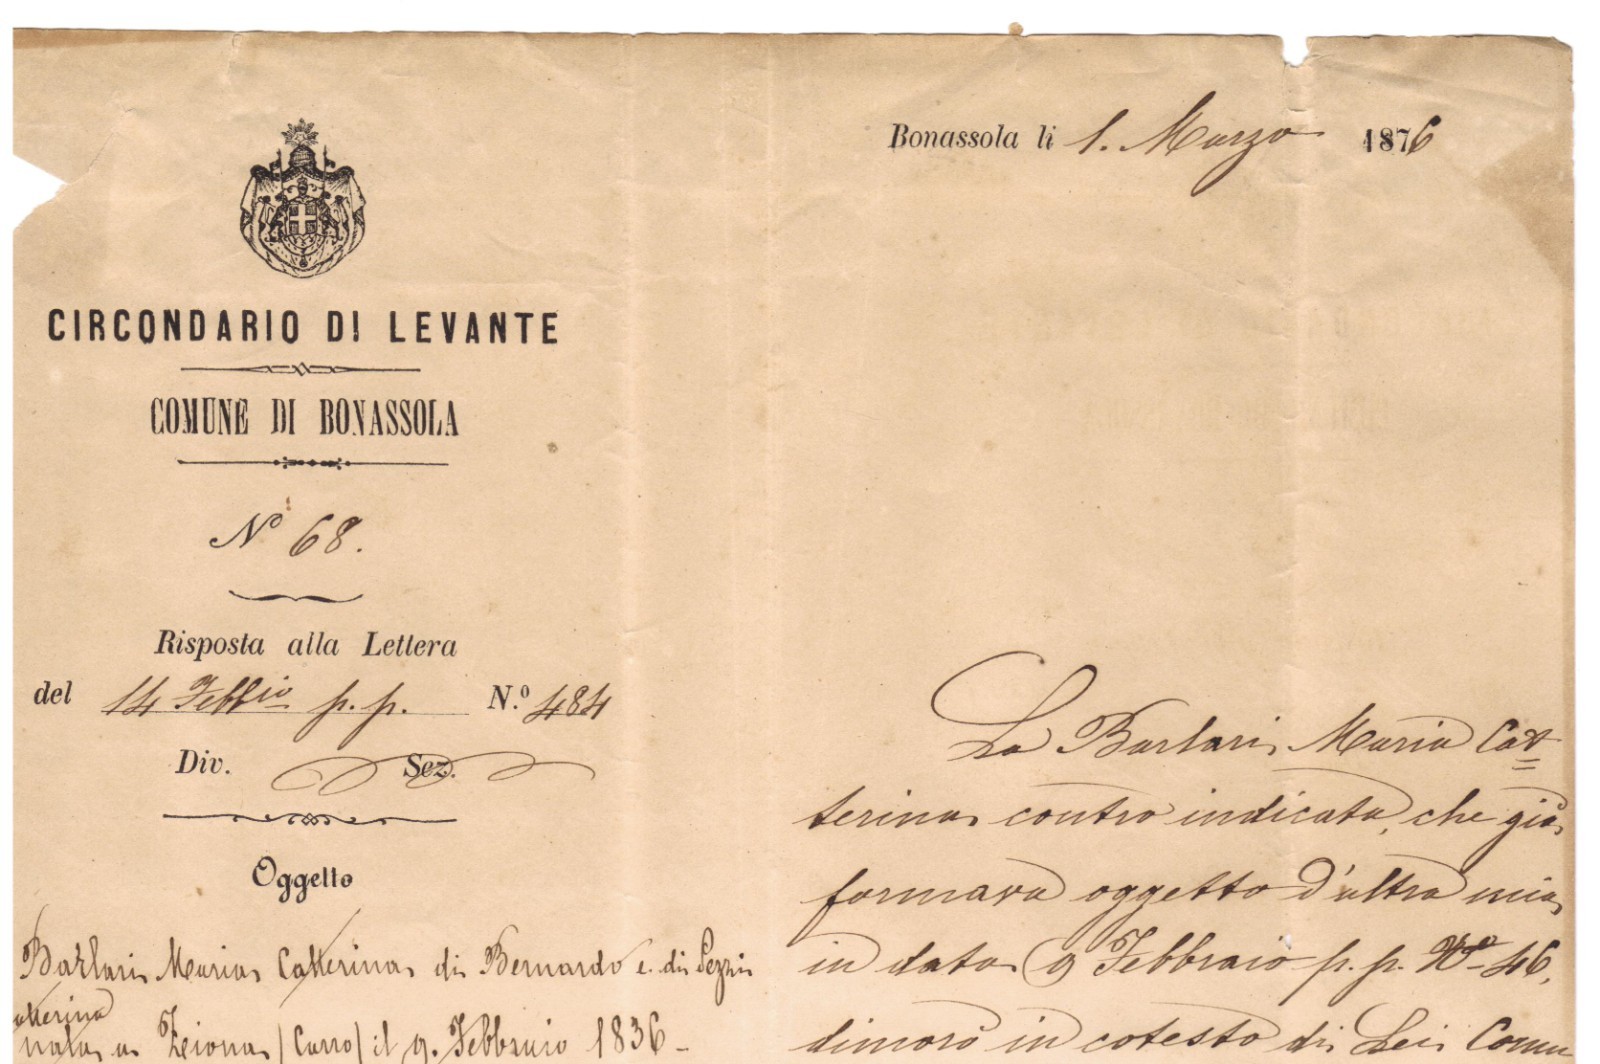 Bonassola li 1. Marzo 1876
CIRCONDARIO DI LEVANTE
COMUNE DI BONASSOLA
N° 68.
Risposta alla Lettera
del 14 Febb.io p.p. N.° 484
Div. Sez.
Oggetto
Barlari Maria Catterina di Bernardo e di Pezzi
Catterina
nata a Ziona (Carro) il 9. Febbraio 1836 -
La Barlari Maria Cat=
terina contro indicata, che già
formava oggetto d'altra mia
in data 9 Febbraio p.p. N° 46,
dimorò in cotesto di Lei Comu